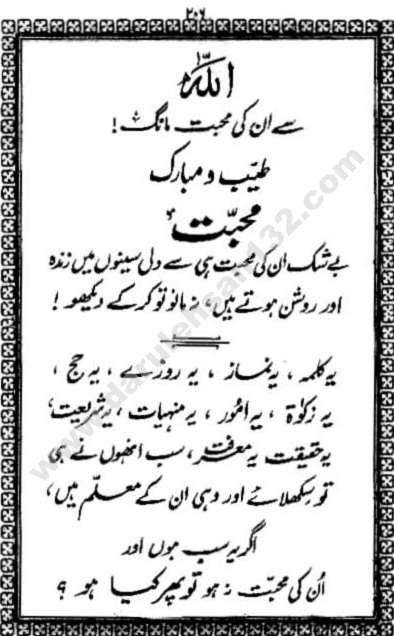 ۲۰۶
اللہ
سے ان کی محبت مانگ !
طیّب و مبارک
محبّت
بے شک ان کی محبت ہی سے دل سینوں میں زندہ
اور روشن ہوتے ہیں، نہ مانو تو کر کے دیکھو !
یہ کلمہ ، یہ نماز ، یہ روزے ، یہ حج ،
یہ زکوٰۃ ، یہ امُور ، یہ منہیات ، یہ شریعت ،
یہ حقیقت یہ معرفت ، سب انھوں نے ہی
تو سِکھلائے اور وہی ان کے معلّم ہیں ،
اگر یہ سب ہوں اور
اُن کی محبّت نہ ہو تو پھر کیا ہو ؟
www.darulehsan132.com